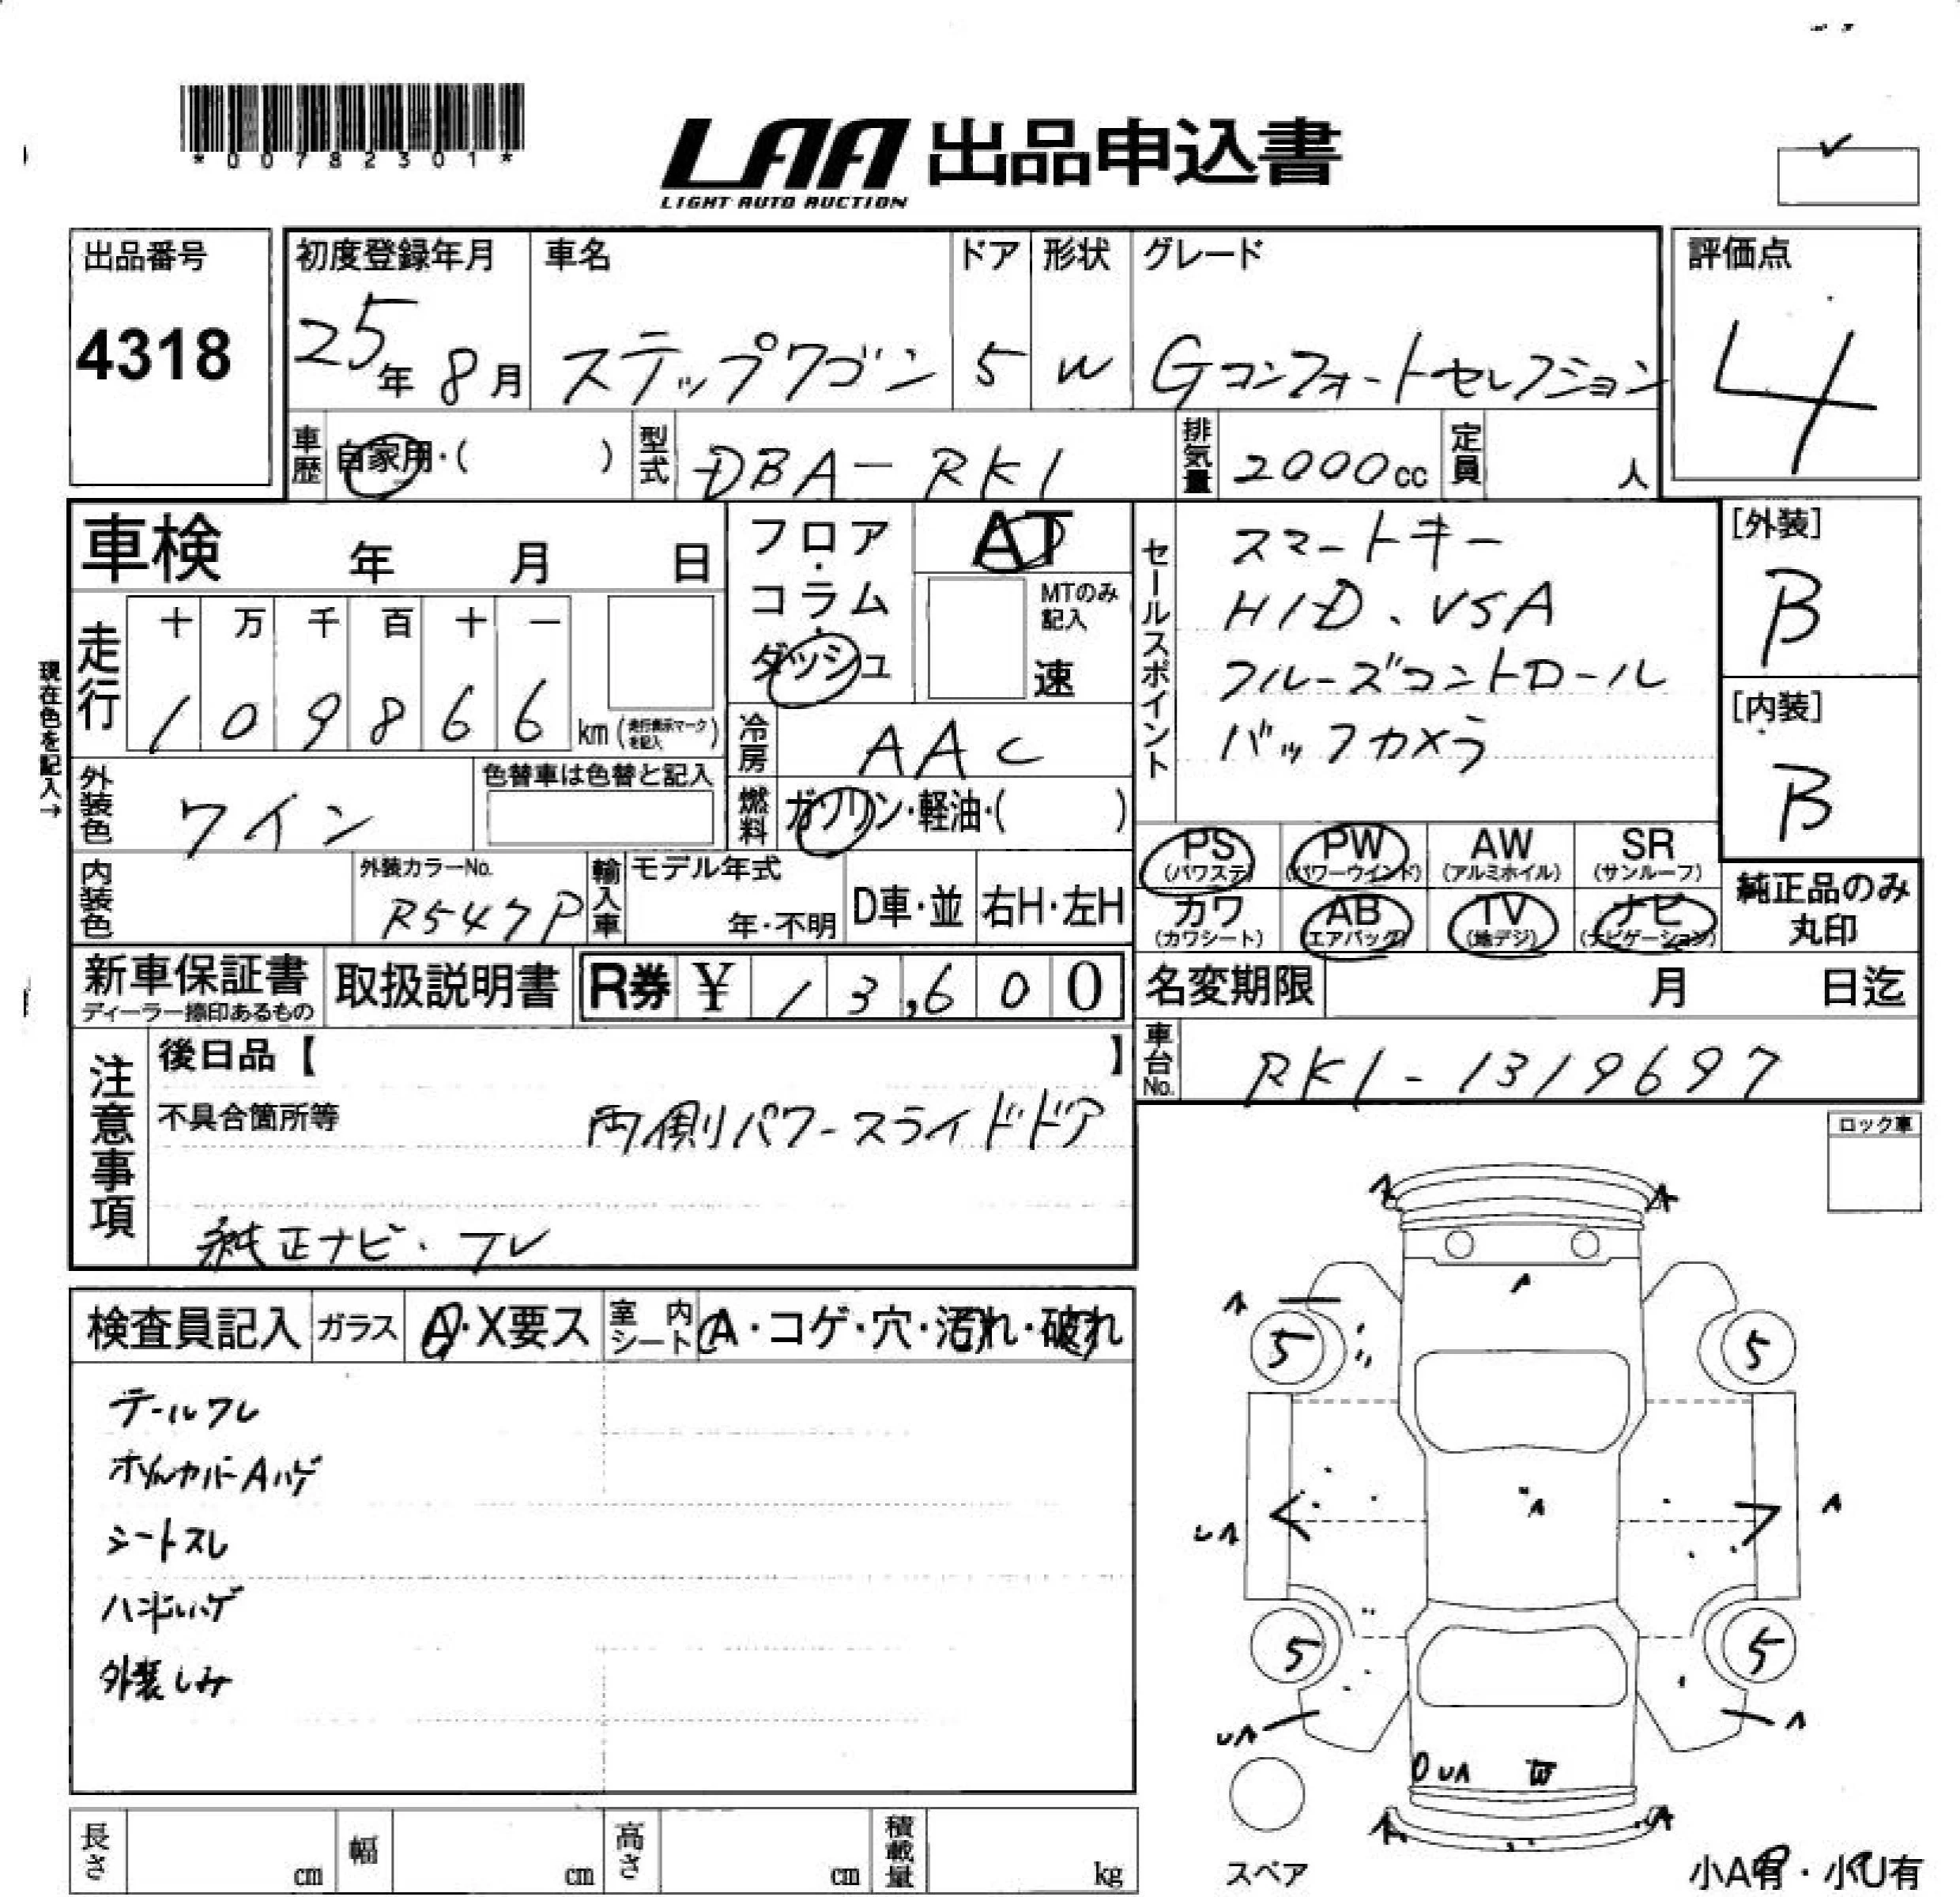 *00782301*
LAA 出品申込書
LIGHT AUTO AUCTION
出品番号
4318
初度登録年月
25年 8月
車名
ステップワゴン
ドア
5
形状
W
グレード
Gコンフォートセレクション
評価点
4
車歴
自家用・( )
型式
DBA-RK1
排気量
2000cc
定員
人
車検 年 月 日
走行
十 万 千 百 十 一
1 0 9 8 6 6 km
現在色を記入→
フロア・コラム・ダッシュ
AT
MTのみ記入
速
冷房
AAC
燃料
ガソリン・軽油・( )
外装色
ワイン
色替車は色替と記入
内装色
外装カラーNo.
R547P
輸入車
モデル年式
年・不明
D車・並
右H・左H
セールスポイント
スマートキー
HID、VSA
クルーズコントロール
バックカメラ
[外装]
B
[内装]
B
PS (パワステ)
PW (パワーウインド)
AW (アルミホイル)
SR (サンルーフ)
カワ (カワシート)
AB (エアバッグ)
TV (地デジ)
ナビ (ナビゲーション)
純正品のみ
丸印
新車保証書
ディーラー捺印あるもの
取扱説明書
R券 ¥ 13,600
名変期限 月 日迄
車台No.
RK1-1319697
注意事項
後日品【 】
不具合箇所等
両側パワースライドドア
純正ナビ・
ロック車
検査員記入
ガラス
A・X要ス
室内シート
A・コゲ・穴・汚れ・破れ
テールワレ
シートスレ
外装しみ
A
A
A
A
5
5
UA
A
A
5
5
UA
A
UA W
A
A
スペア
小A有・小U有
長さ cm
幅 cm
高さ cm
積載量 kg